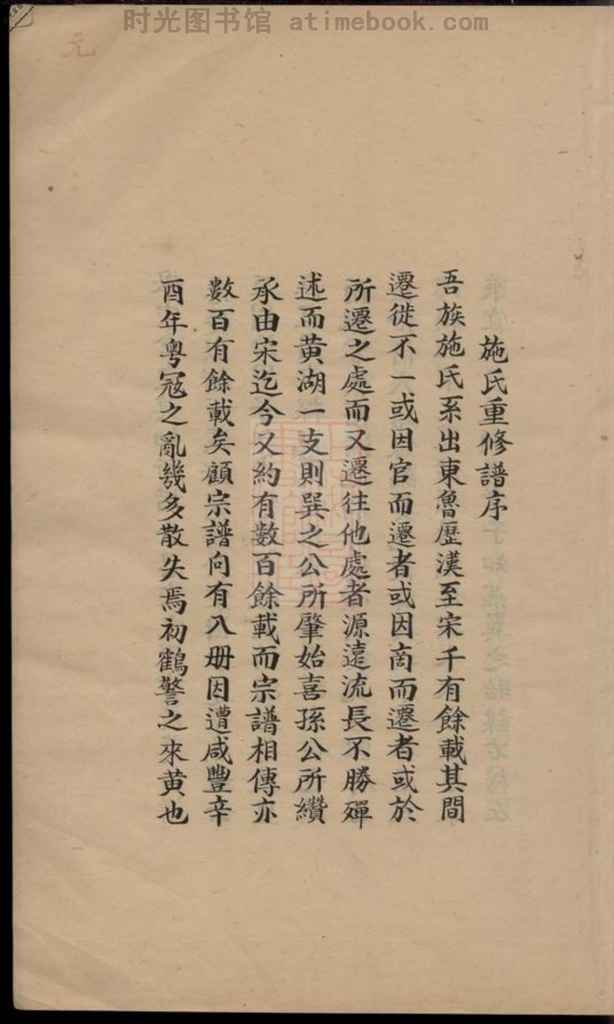 时光图书馆 atimebook.com
元
施氏重修譜序
吾族施氏系出東魯歷漢至宋千有餘載其間
遷徙不一或因官而遷者或因商而遷者或於
所遷之處而又遷往他處者源遠流長不勝殫
述而黄湖一支則巽之公所肇始喜孫公所纘
承由宋迄今又約有数百餘載而宗譜相傳亦
数百有餘載矣顧宗譜向有八册因遭咸豐辛
酉年粤冦之亂幾多散失焉初鶴警之來黄也